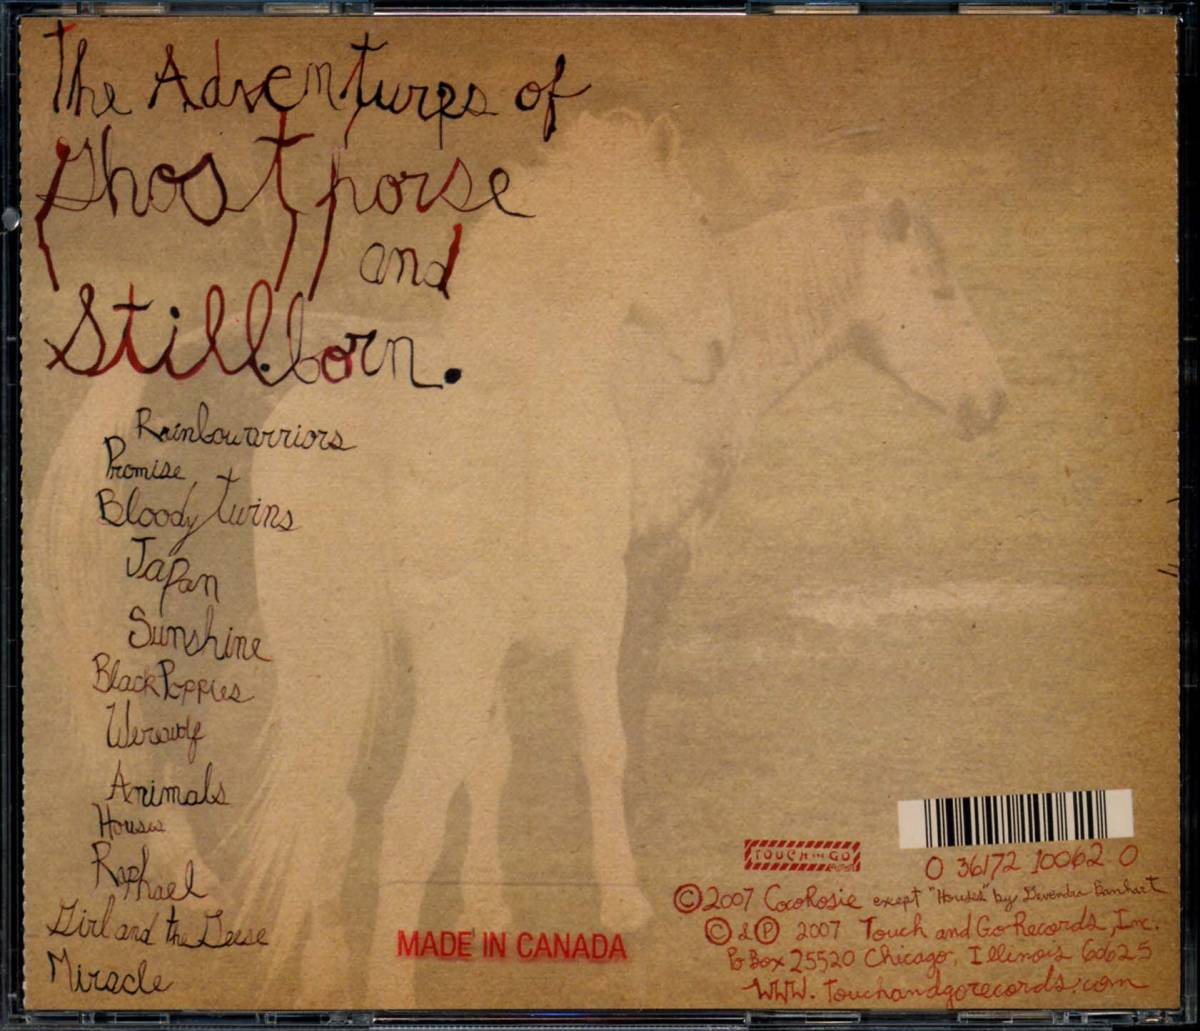 The Adventures of
Ghosthorse
and
Stillborn.
Rainbowarriors
Promise
Bloody twins
Japan
Sunshine
Black Poppies
Werewolf
Animals
Houses
Raphael
Girl and the Geese
Miracle
MADE IN CANADA
TOUCH AND GO
0 36172 10062 0
©2007 CocoRosie except "Houses" by Devendra Banhart
© & ℗ 2007 Touch and Go Records, Inc.
Po Box 25520 Chicago, Illinois 60625
WWW.Touchandgorecords.com